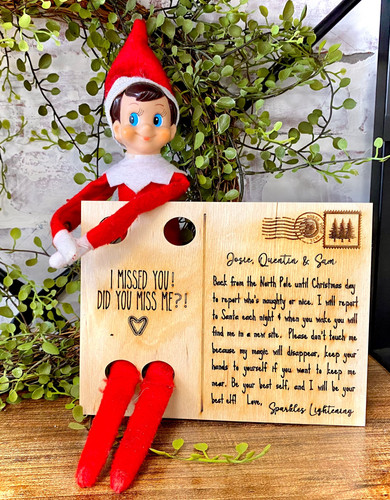 I MISSED YOU!
DID YOU MISS ME?!
Josie, Quentin & Sam
Back from the North Pole until Christmas day
to report who's naughty or nice. I will report
to Santa each night & when you wake you will
find me in a new site. Please don't touch me
because my magic will disappear, keep your
hands to yourself if you want to keep me
near. Be your best self, and I will be your
best elf! Love,
Sparkles Lightening